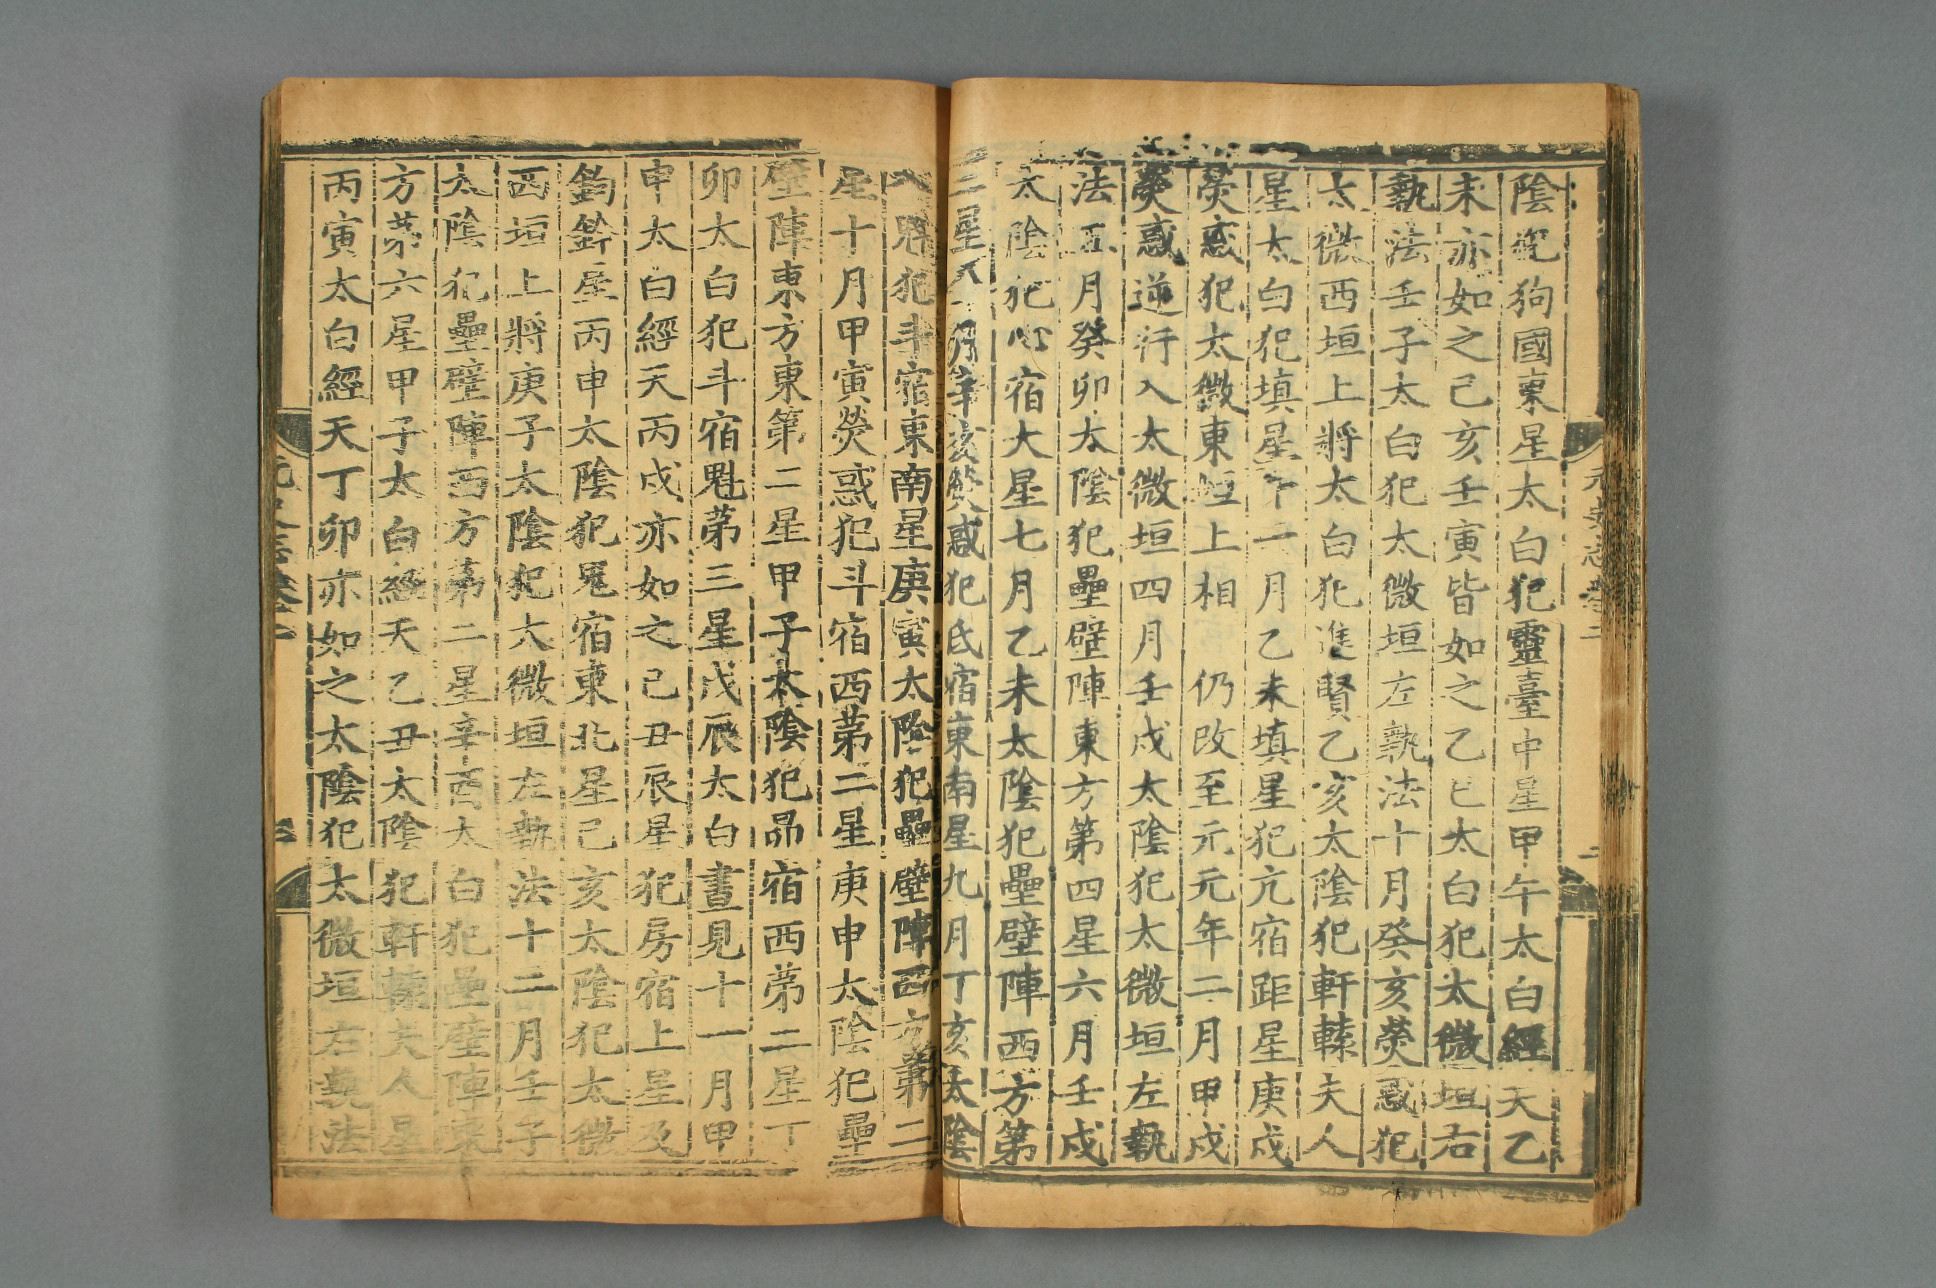 陰犯狗國東星太白犯靈臺中星甲午太白經天乙
未亦如之己亥壬寅皆如之乙巳太白犯太微垣右
執法壬子太白犯太微垣左執法十月癸亥熒惑犯
太微西垣上將太白犯進賢乙亥太陰犯軒轅夫人
星太白犯填星十一月乙未填星犯亢宿距星庚戌
熒惑犯太微東垣上相 仍改至元元年二月甲戌
熒惑逆行入太微垣四月壬戌太陰犯太微垣左執
法五月癸卯太陰犯壘壁陣東方第四星六月壬戌
太陰犯心宿大星七月乙未太陰犯壘壁陣西方第
二星八月辛亥熒惑犯氐宿東南星九月丁亥太陰
入魁犯斗宿東南星庚寅太陰犯壘壁陣西方第二
星十月甲寅熒惑犯斗宿西第二星庚申太陰犯壘
壁陣東方東第二星甲子太陰犯昴宿西第二星丁
卯太白犯斗宿魁第三星戊辰太白晝見十一月甲
申太白經天丙戌亦如之己丑辰星犯房宿上星及
鉤鈐星丙申太陰犯鬼宿東北星己亥太陰犯太微
西垣上將庚子太陰犯太微垣左執法十二月壬子
太陰犯壘壁陣西方第二星辛酉太白犯壘壁陣東
方第六星甲子太白經天乙丑太陰犯軒轅夫人星
丙寅太白經天丁卯亦如之太陰犯太微垣右執法